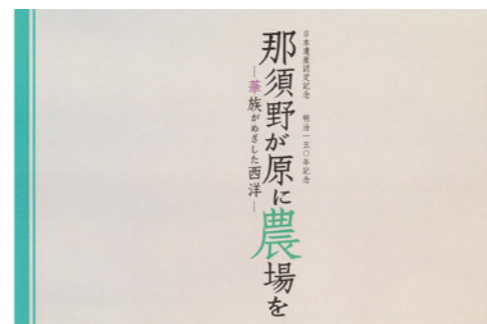 日本遺産認定記念　明治一五〇年記念
那須野が原に農場を
―華族がめざした西洋―